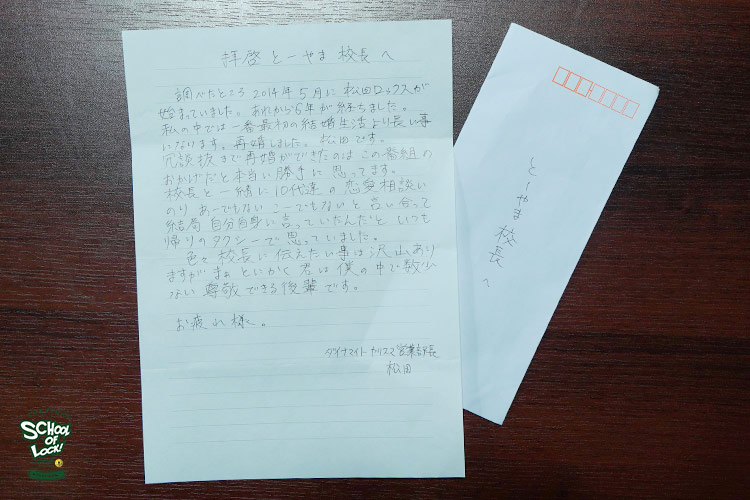 拝啓 とーやま 校長 へ
調べたところ 2014年 5月に 松田ロックスが
始まっていました。あれから6年が経ちました。
私の中では一番最初の結婚生活より長い事
になります。再婚しました。松田です。
冗談抜きで再婚ができたのは この番組の
おかげだと本当に勝手に思ってます。
校長と一緒に10代達の恋愛相談に
のり あーでもない こーでもないと 言い合って
結局 自分自身に言っていたんだと いつも
帰りのタクシーで思っていました。
色々校長に伝えたい事は沢山あり
ますが まぁ とにかく 君は 僕の中で数少
ない 尊敬できる後輩です。
お疲れ様。
ダイナマイト カリスマ 営業部長
松田
とーやま校長 へ
SCHOOL
OF
LOCK!